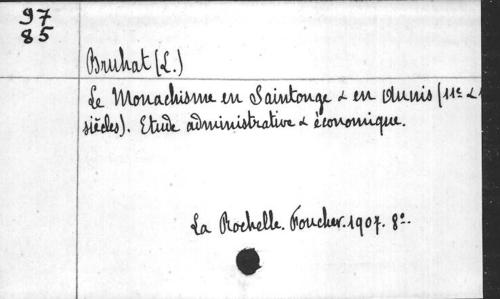 97
85
Bruhat (L.)
Le Monachisme en Saintonge & en Aunis (11e &
siècles). Etude administrative & économique.
La Rochelle. Foucher. 1907. 8o.